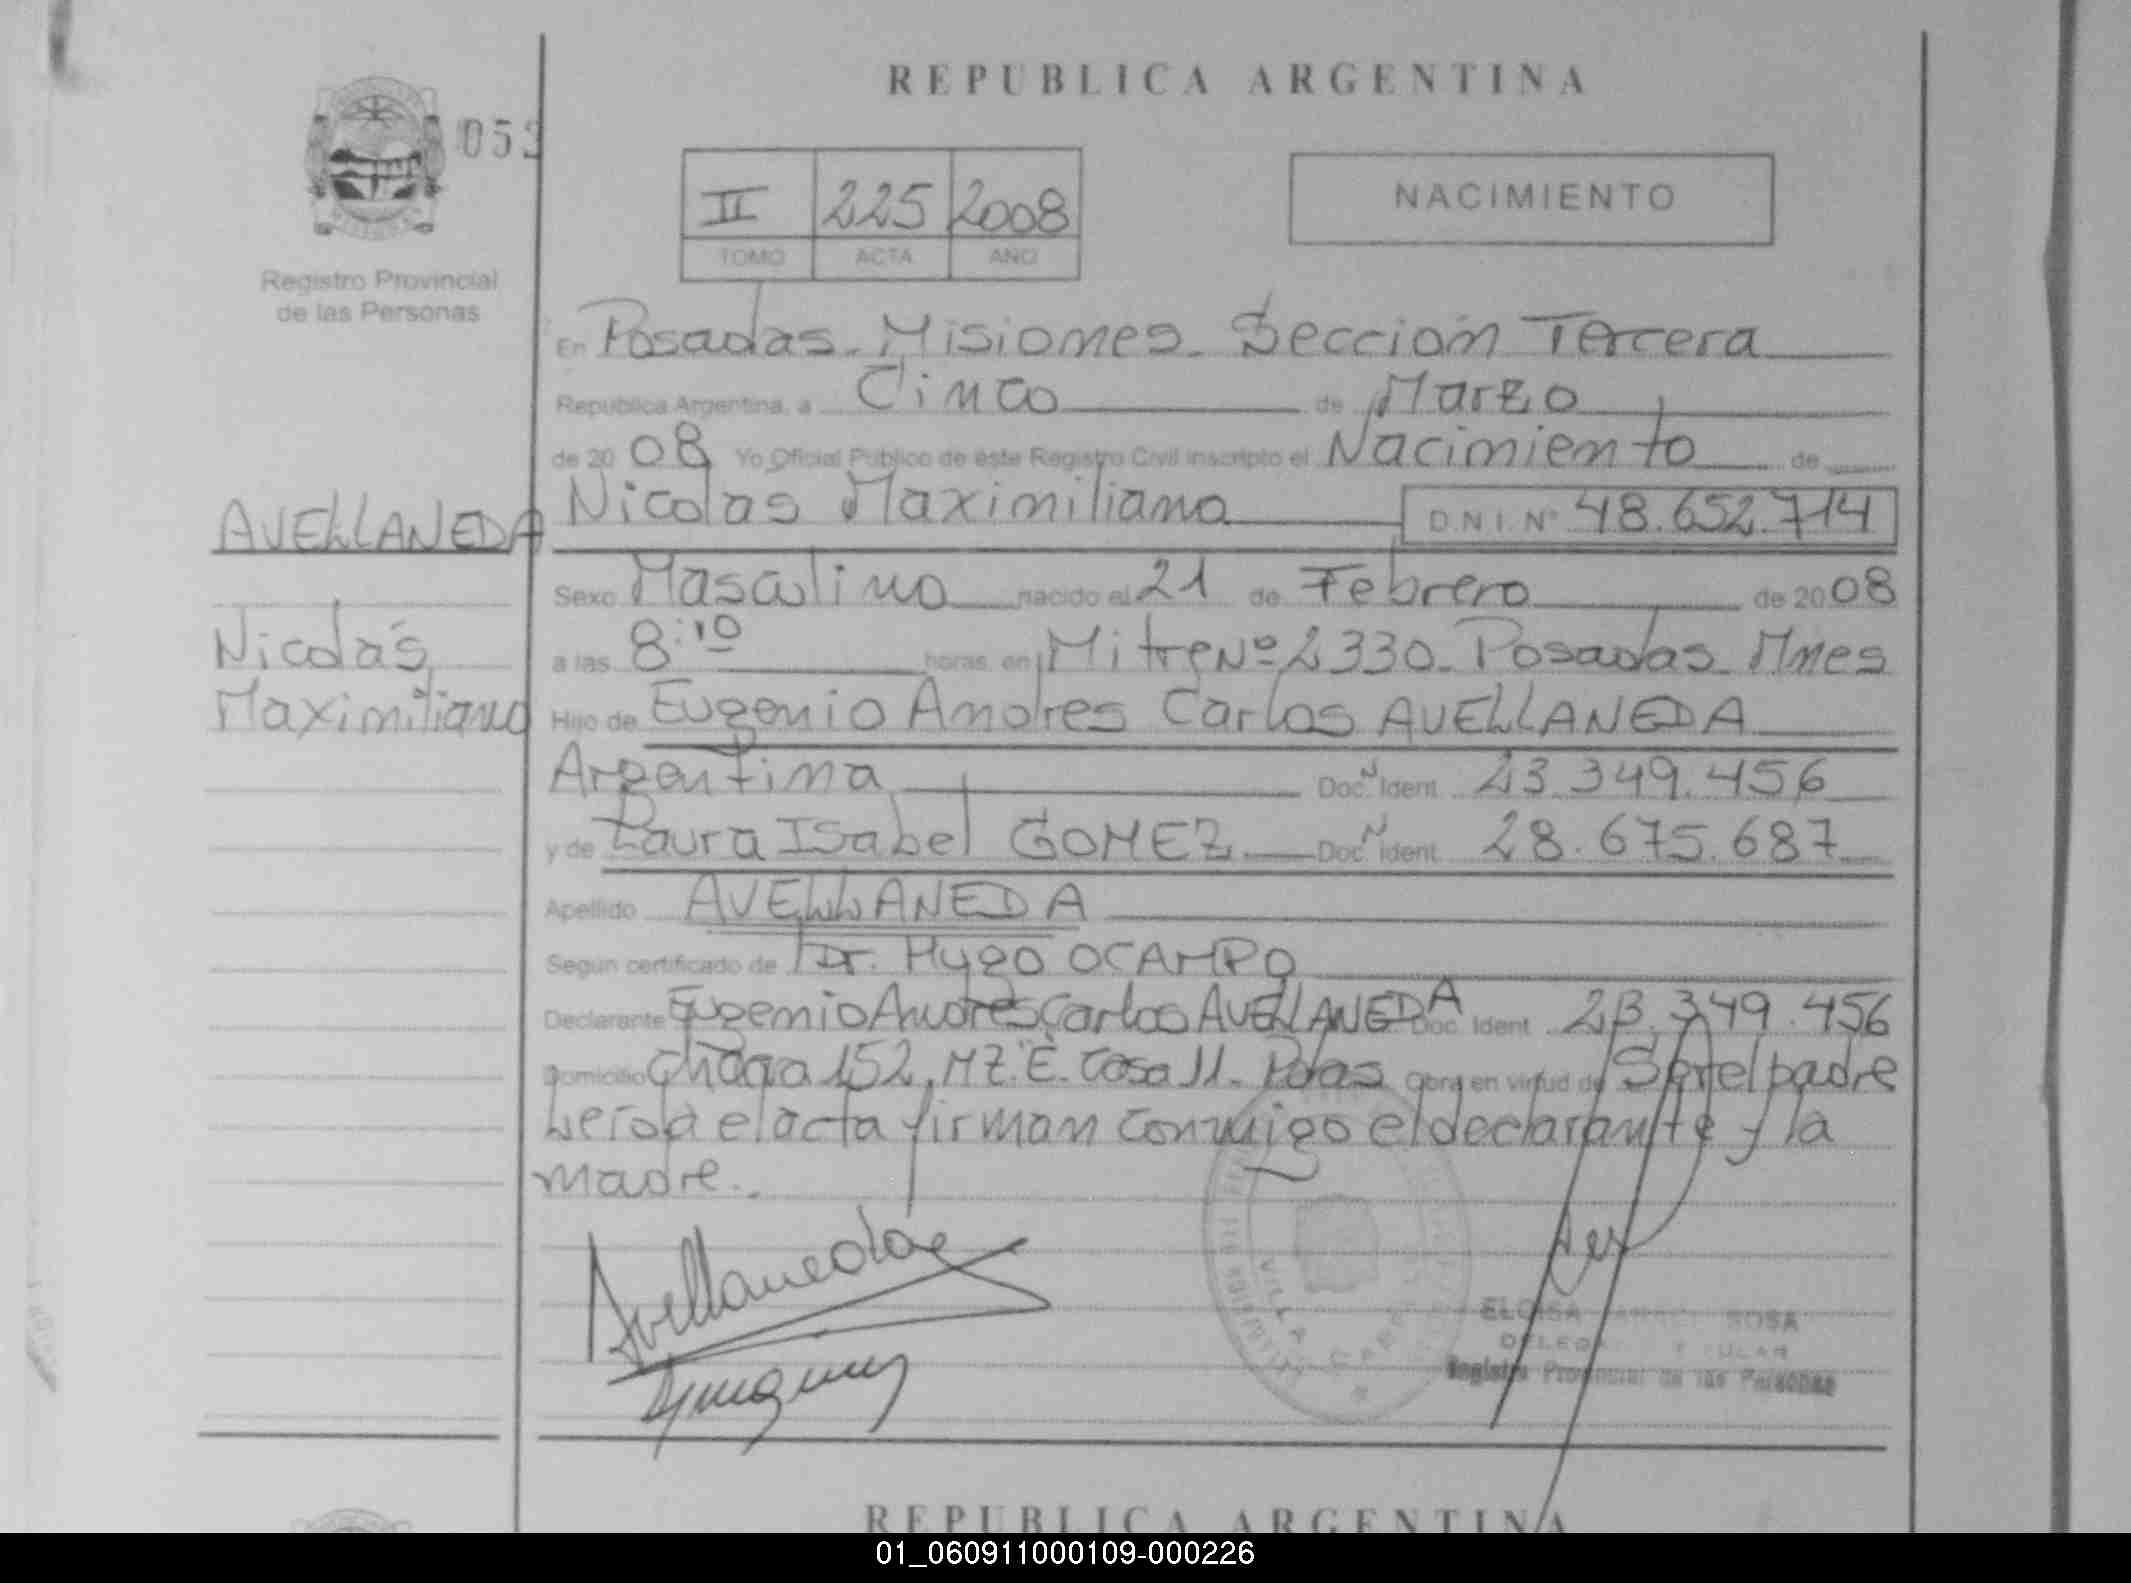 REPUBLICA ARGENTINA
053
II 225 2008
TOMO ACTA AÑO
NACIMIENTO
Registro Provincial
de las Personas
En Posadas - Misiones - Sección Tercera
República Argentina, a Cinco de Marzo
de 2008 Yo Oficial Público de este Registro Civil inscripto el Nacimiento de
AVELLANEDA
Nicolas Maximiliano D.N.I. Nº 48.652.714
Sexo Masculino nacido el 21 de Febrero de 2008
Nicolás
Maximiliano
a las 8:10 horas en Mitre Nº 2330 - Posadas - Mnes
Hijo de Eugenio Andres Carlos AVELLANEDA
Argentina Doc. N Ident. 23.349.456
y de Laura Isabel GOMEZ Doc. N Ident. 28.675.687
Apellido AVELLANEDA
Según certificado de Dr. Hugo OCAMPO
Declarante Eugenio Andres Carlos AVELLANEDA Doc. Ident. 23.349.456
Domicilio Chaca 152, MZ. E. Casa 11. Pdas Obra en virtud de Ser el padre
Leída el acta firman conmigo el declarante y la
madre.
Avellaneda
ELOISA SOSA
Registro Provincial de las Personas
REPUBLICA ARGENTINA
01_060911000109-000226